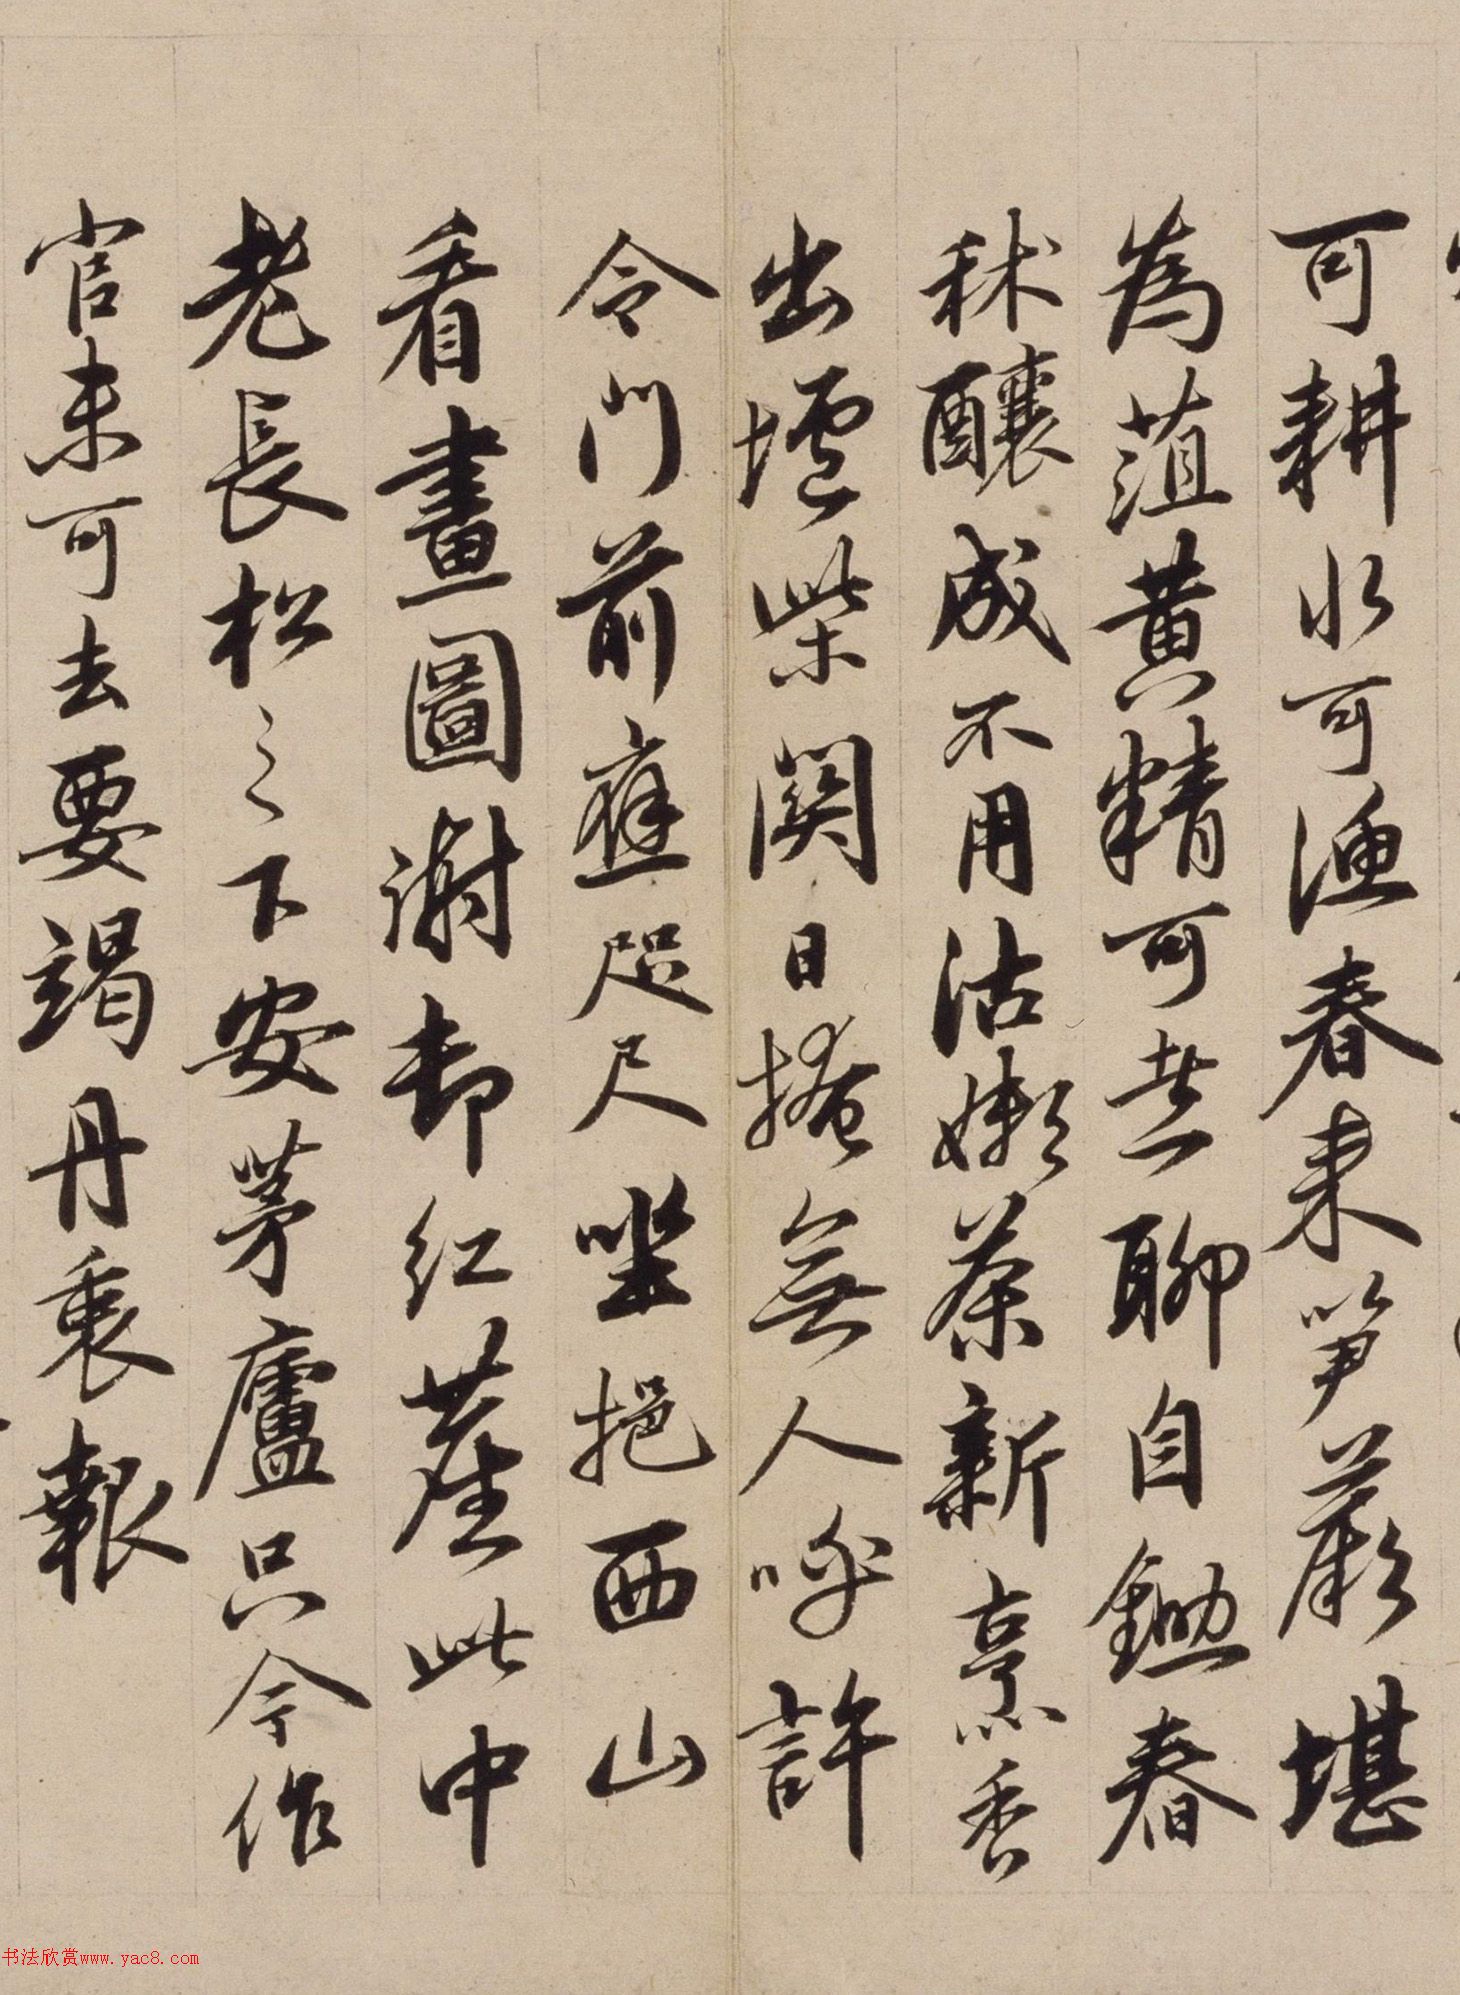 可耕水可漁春来笋蕨堪
為菹黄精可煮聊自鋤春
秫釀成不用沽嫩茶新烹香
出壚柴關日掩無人呼許
令門前應咫尺坐挹西山
看畫圖謝却紅塵此中
老長松之下安茅廬只今作
官未可去要竭丹衷報
书法欣赏www.yac8.com